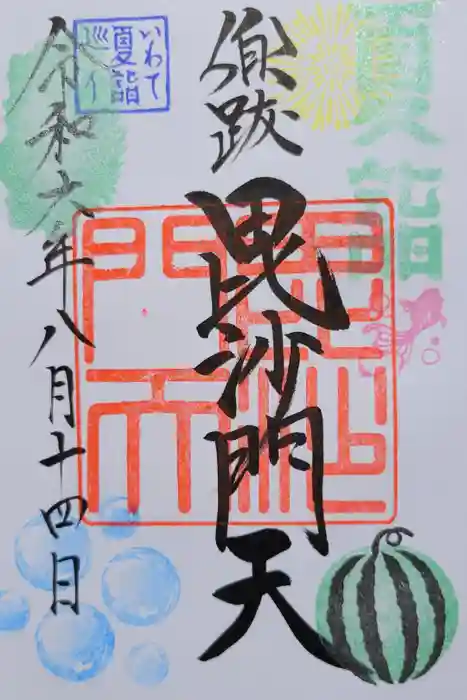 夏詣
兜跋
毘沙門天
毘沙
門天
いわて
夏詣
巡り
令和六年八月十四日